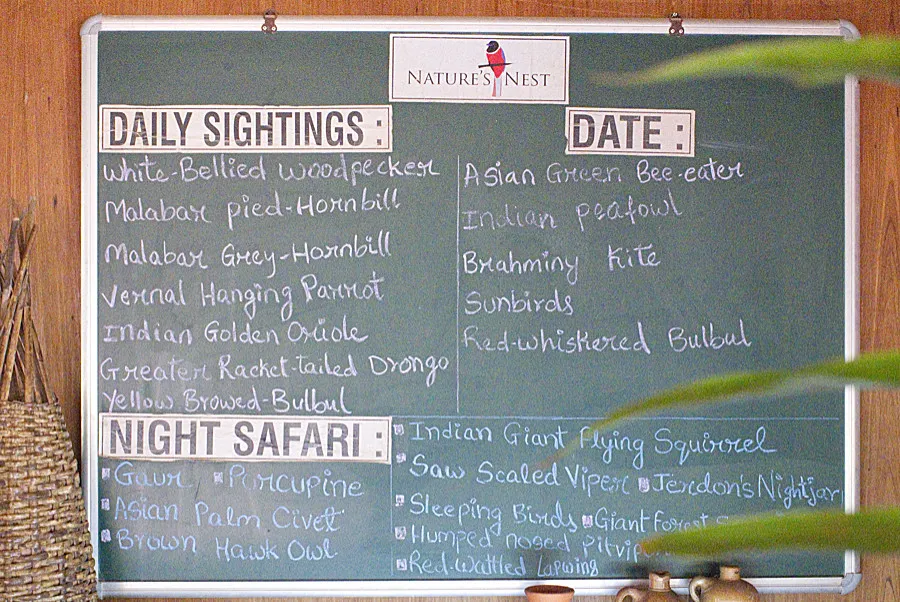 NATURE'S NEST
DAILY SIGHTINGS :
White-Bellied Woodpecker
Malabar pied-Hornbill
Malabar Grey-Hornbill
Vernal Hanging Parrot
Indian Golden Oriole
Greater Racket-tailed Drongo
Yellow Browed-Bulbul
DATE :
Asian Green Bee-eater
Indian peafowl
Brahminy Kite
Sunbirds
Red-whiskered Bulbul
NIGHT SAFARI :
Gaur Porcupine
Asian Palm Civet
Brown Hawk Owl
Indian Giant Flying Squirrel
Saw Scaled Viper Jerdon's Nightjar
Sleeping Birds Giant forest
Humped nosed
Red-Wattled Lapwing